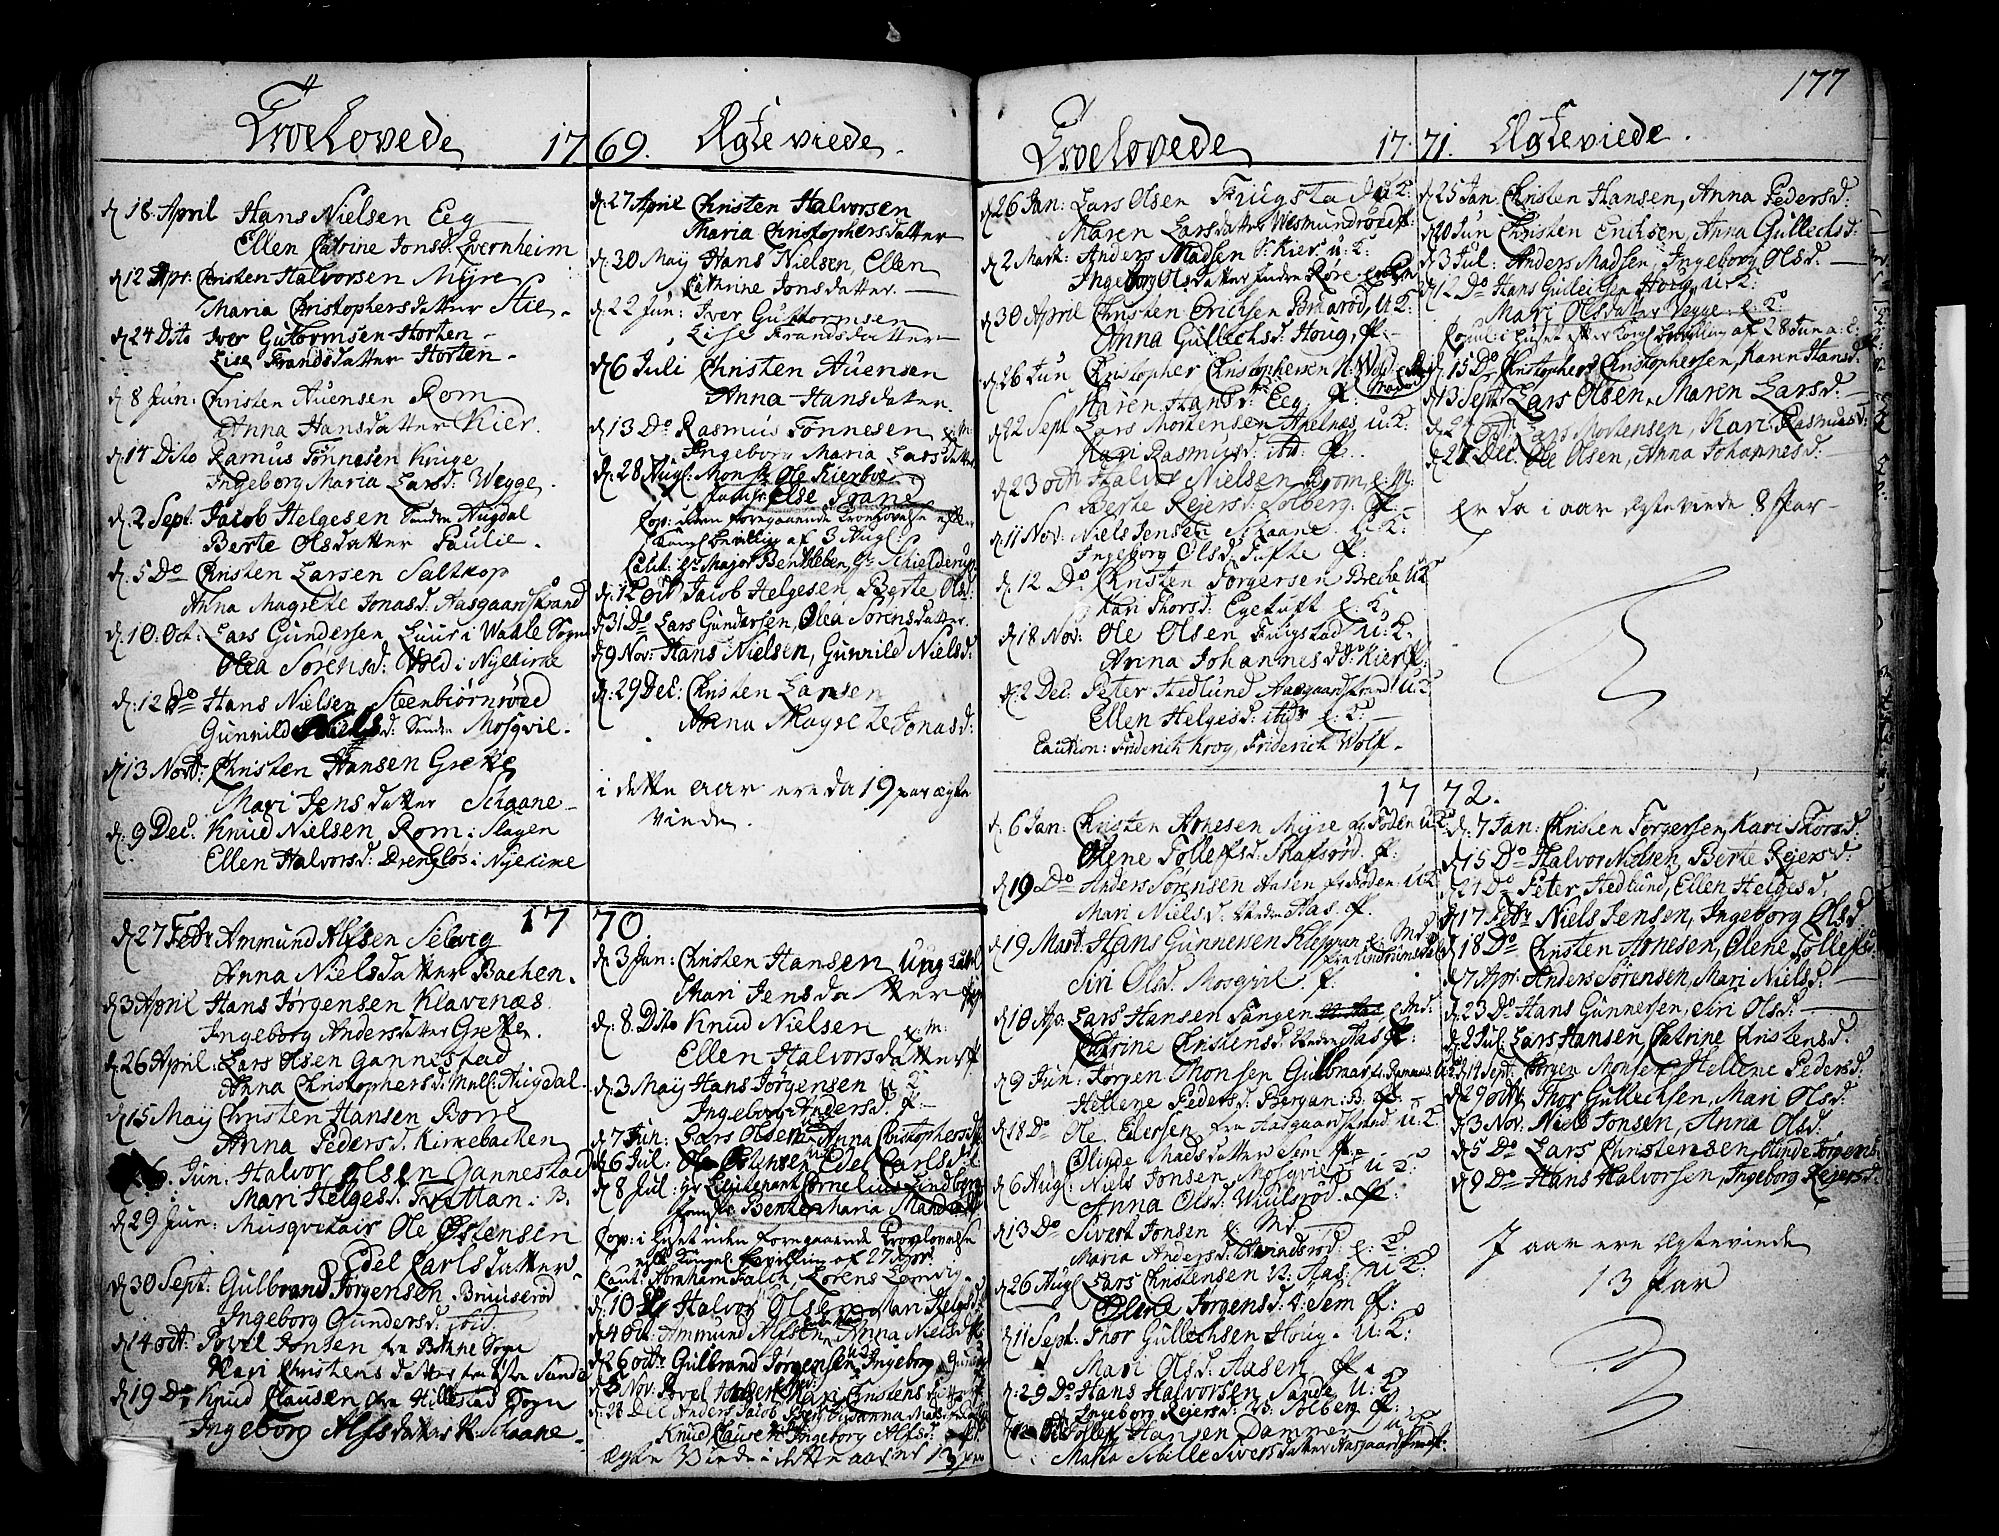 177
Troelovede 1769. Ægteviede.
d. 18. April Hans Nielsen Eeg
Ellen Catrine Jonsd: Lvernheim
d. 12 Apr: Christen Halvorsen Mÿre
Maria Christophersdatter Stie.
d. 24 Dito Iver Gutormsen Horten
Lise Frandsdatter Horten.
d. 8 Jun: Christen Auensen Rom
Anna Hansdatter Kier.
d. 14 Dito Ramus Tönnesen Kruge
Ingeborg Maria Larsd: Wegge.
d. 2 Sept: Jacob Helgesen Søndre Augdal
Berte Olsdatter Paulie.
d. 5 Do Christen Larsen Saltkop
Anna Magrete Jonasd: Aasgaardstrand
d. 10. Oct: Lars Gundersen Luur i Waale Sogn
Olea Sørensd: Vold i Nykirke
d. 12 Do Hans Nielsen Steenbiørnröed
Gunnild Nielsd: Søndre Mosqvil.
d. 13 Novb: Christen Hansen Grette
Mari Jens datter Schaane
d. 9 Dec. Knud Nielsen Rom i Slagen
Ellen Halvorsd: i Nykirke
d. 27 April Christen Halvorsen
Maria Christophersdatter
d. 30 Maÿ Hans Nielsen, Ellen
Cathrine Jonsdatter.
d. 22 Jun: Iver Guttormsen
Lise Frandsdatter
d. 6 Juli Christen Auensen
Anna Hansdatter.
d. 13 Do Rasmus Tönnesen
Ingeborg Maria Larsdatter
d. 28 Augl: Monsr Ole Kierboe
Jomfr: Else Trane
Cop: uden foregaaende Troelovelse efter
Kongl bevilling af 3 Augl
Caut: Hr Major Bentleben, Hr Schielderup
d. 12 Oct Jacob Helgesen, Berte Olsd:
d. 31 Do Lars Gundersen, Olea Sörensdatter.
d. 9 Nov: Hans Nielsen, Gunnild Nielsd:
d. 29 Dec: Christen Larsen
Anna Magrete Jonasd:
i dette aar ere da 19 par ægte
viede.
1770.
d. 27 Febr Ammund Alfsen Selvig
Anna Nielsdatter Bachen.
d. 3 April Hans Jørgensen Klavenæs
Ingeborg Andersdatter Grette.
d. 26 April: Lars Olsen Gannestad
Anna Christophersd: Mell: Augdal.
d. 15 Maÿ Christen Hansen Borre
Anna Pedersd. Kirkebachen
6. Jun: Halvor Olsen Gannestad
Mari Helgesd. Tvettan. B.
d. 29 Jun: Musqvetair Ole Østensen
Edel Carlsdatter
d. 30 Sept: Gulbrand Jørgensen Bruuserød
Ingeborg Gundersd: ibid.
d. 14 oct: Povel Jonsen fra Sogn
Kari Christensdatter fra Sande
d. 19 Do Knud Clausen fra Hillestad Sogn
Ingeborg Alfsdatter Schaane
d. 3 Jan: Christen Hansen Ungkarl
Mari Jensdatter
d. 8 Dito Knud Nielsen
Ellen Halvorsdatter
d. 3 Maÿ Hans Jørgensen u: K:
Ingeborg Andersd. P:
d. 7 Jun: Lars Olsen Anna Christophersd:
d. 6 Jul: Ole Østensen Edel Carlsd:
d. 8 Jul: Hr Lieutenant Cornelius Lindberg
Jomfr: Bente Maria
Cop: i Huset uden foregaaende Troelovelse
efter Kongel bevilling af 27 Apr:
Caut: Abraham Falch, Lorens Lomvig
d. 10 Halvor Olsen Mari Helgesd:
d. 4 Oct: Ammund Alfsen Anna Nielsd
d. 26 octbr Gulbrand Jørgensen Ingeborg Gundersd
d. 5 Nov: Povel Jonsen Kari Christens
d. 28 Dec Anders Jacobsen Susanna
Knud Clausen Ingeborg Alfsd:
ægte viede i dette aar er 13 par
Troelovede 1771. Ægteviede.
d. 26 Jan: Lars Olsen Friigstad u: K:
Maren Larsdatter Wesmundröd P:
d. 2 Mart: Anders Madsen Kier u: K:
Ingeborg Olsdatter Søndre Røre
d. 30 April Christen Erichsen Braaröd, u: K:
Anna Gullechsd: Houg, P:
d. 26 Jun Christopher Christophersen
Karen Hansd: Eeg P:
d. 22 Sept Lars Mortensen Apelnes u: K:
Kari Rasmusd: ibd: P.
d. 23 oct Halvor Nielsen Broom e: M:
Berte Rejersd: Solberg. P:
d. 11 Nov: Niels Jensen Skaane. u: K:
Ingeborg Olsd: P:
d. 12 Do Christen Torgersen Breche u: K
Kari Thorsd: Egetuft e: K
d. 18 Nov: Ole Olsen Friigstad u: K:
Anna Johannesd: Kier P:
d. 2 Dec. Peter Hedlund Aasgaardstrand u: K:
Ellen Helgesd: ibid: e: K:
Caution: Friderich Krog, Friderich Wolf.
d. 25 Jan: Christen Hansen, Anna Pedersd:
d. 20 Jun Christen Erichsen, Anna Gullechsd:
d. 3 Jul: Anders Madsen, Ingeborg Olsd:
d. 12 Do Hans Gulechsen Houg u: K:
Mari Olsdatter Vegge e: K:
Copul: i Huset efter Kongl bevilling af 28 Jun a: c:
d. 15 Do Christopher Christophersen, Karen Hansd:
d. 13 Sept: Lars Olsen, Maren Larsd:
d. 27 oct: Lars Mortensen, Kari Rasmusd:
d. 28 Dec. Ole Olsen, Anna Johannesd:
Er da i aar ægteviede 8 Par
1772.
d. 6 Jan: Christen Arnesen Mÿre u: K:
Olene Tolleffsd: Skafsröd. P:
d. 19 Do Anders Sörensen Aasen u: K
Mari Nielsd. Aas. P.
d. 19 Mart: Hans Gunnersen Kleppan e: M
Siri Olsd. Mosqvil. P.
d. 10 Apr Lars Hansen Tangen e: M:
Catrine Christensd: Aas P:
d. 9 Jun: Jørgen Monsen Gulbrar
Hellene Pedersd: Bergan: B. P:
d. 18 Do Ole Ellersen fra Aasgaardstrand u: K:
Olinde Madsdatter Sem P:
d. 6 Augl: Niels Jonsen Mosqvil u: K:
Anna Olsd: Wiulsröd. P:
d. 13 Do Sivert Jonsen e. M.
Maria Andersd: e: K:
d. 26 Augl Lars Christensen N: Aas. u: K:
Olene Jørgensd: v: Sem P:
d. 11 Sept: Thor Gullechsen Houg. u: K:
Mari Olsd. Aasen P.
d. 29 Do Hans Halvorsen Sande u: K:
Ingeborg Reiersd: Solberg. P.
Tollef Hansen Dammen
Siversdatter Aasgaardstrand
d. 7 Jan: Christen Torgersen, Kari Thorsd.
d. 15 Do Halvor Nielsen, Berte Rejersd:
d. 24 Do Peter Hedlund, Ellen Helgesd:
d. 17 Febr Niels Jensen, Ingeborg Olsd.
d. 18 Do Christen Arnesen, Olene Tolleffsd:
d. 7 Apr: Anders Sörensen, Mari Nielsd:
d. 23 Do Hans Gunnersen, Siri Olsd:
d. 2 Jul. Lars Hansen, Catrine Christensd.
d. 14 Sept: Jørgen Monsen, Hellene Pedersd:
d. 29 octb: Thor Gullechsen, Mari Olsd:
d. 3 Nov: Niels Jonsen, Anna Olsd:
d. 5 Do Lars Christensen,
d. 9 Do Hans Halvorsen, Ingeborg Reiersd.
I aar ere ægteviede
13 Par